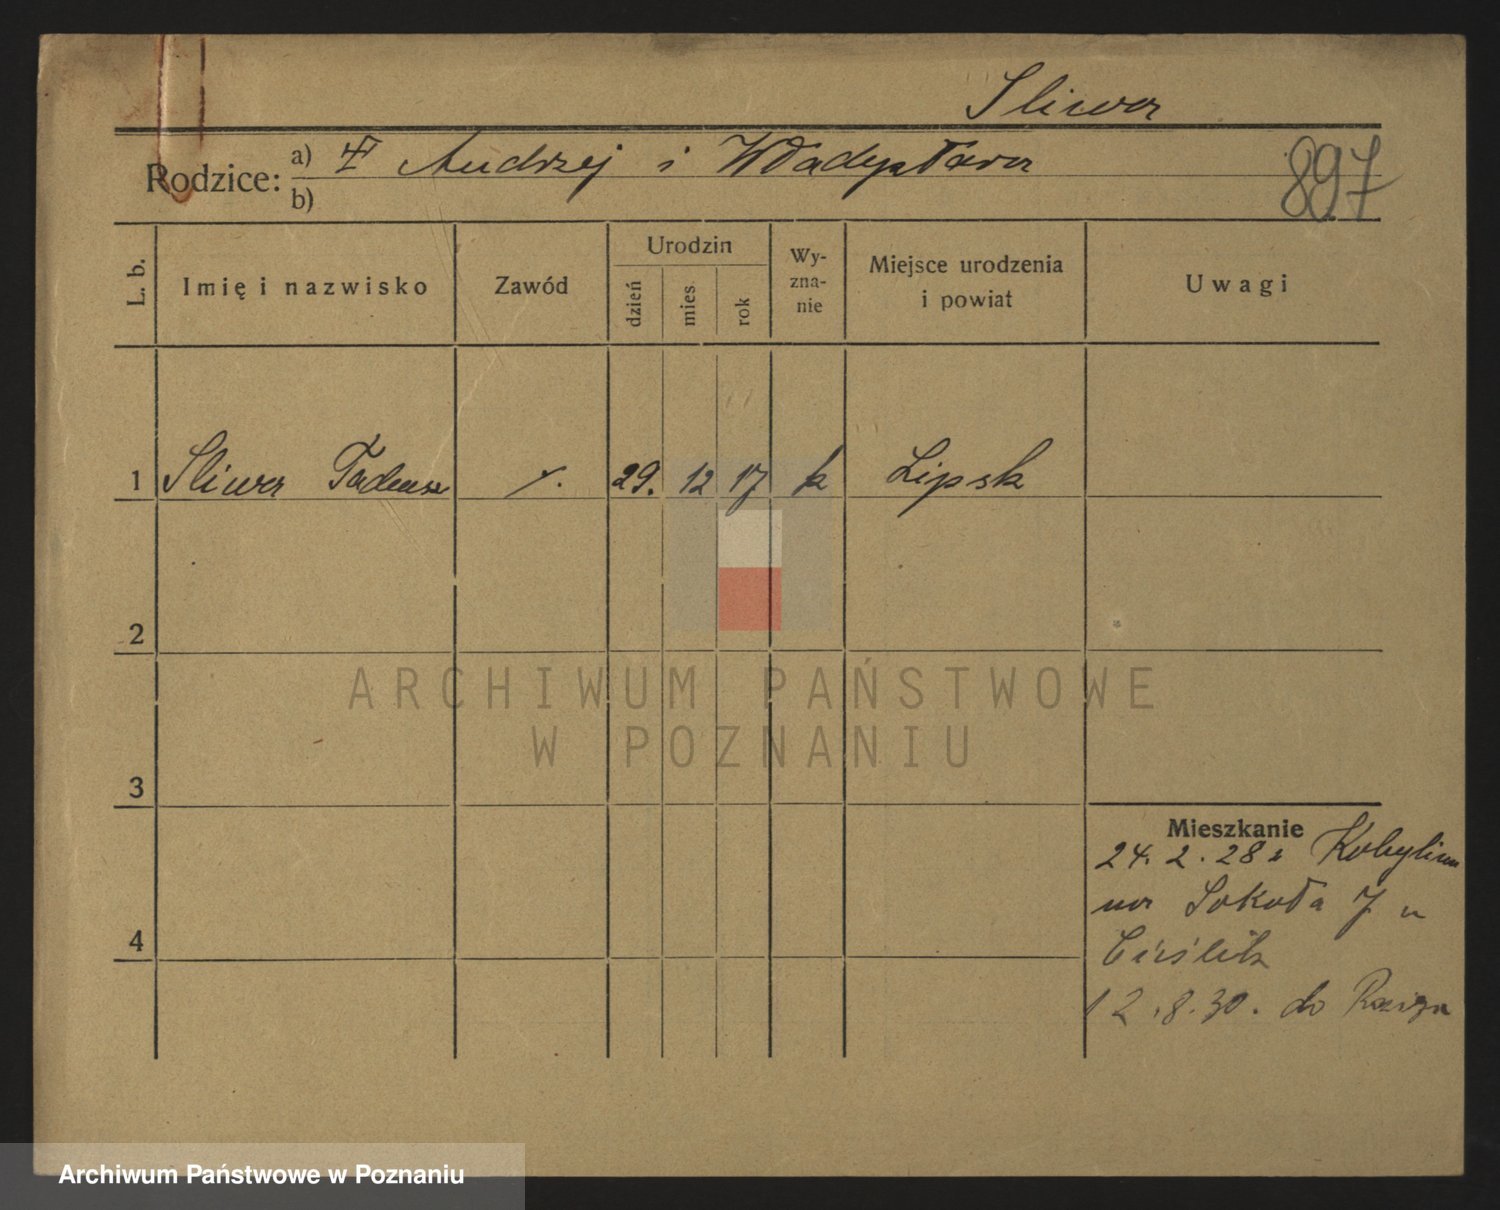 Sliwa
Rodzice: a) Andrzej i Władysława
b)
897
L. b.
Imię i nazwisko
Zawód
Urodzin
dzień
mies.
rok
Wy-
zna-
nie
Miejsce urodzenia
i powiat
Uwagi
1 Sliwa Tadeusz 29. 12 17 k Lipsk
2
3
4
Mieszkanie
24. 2. 28 z Kobylina
na Sokoła 7 u
12.8.30. do
ARCHIWUM PAŃSTWOWE
W POZNANIU
Archiwum Państwowe w Poznaniu